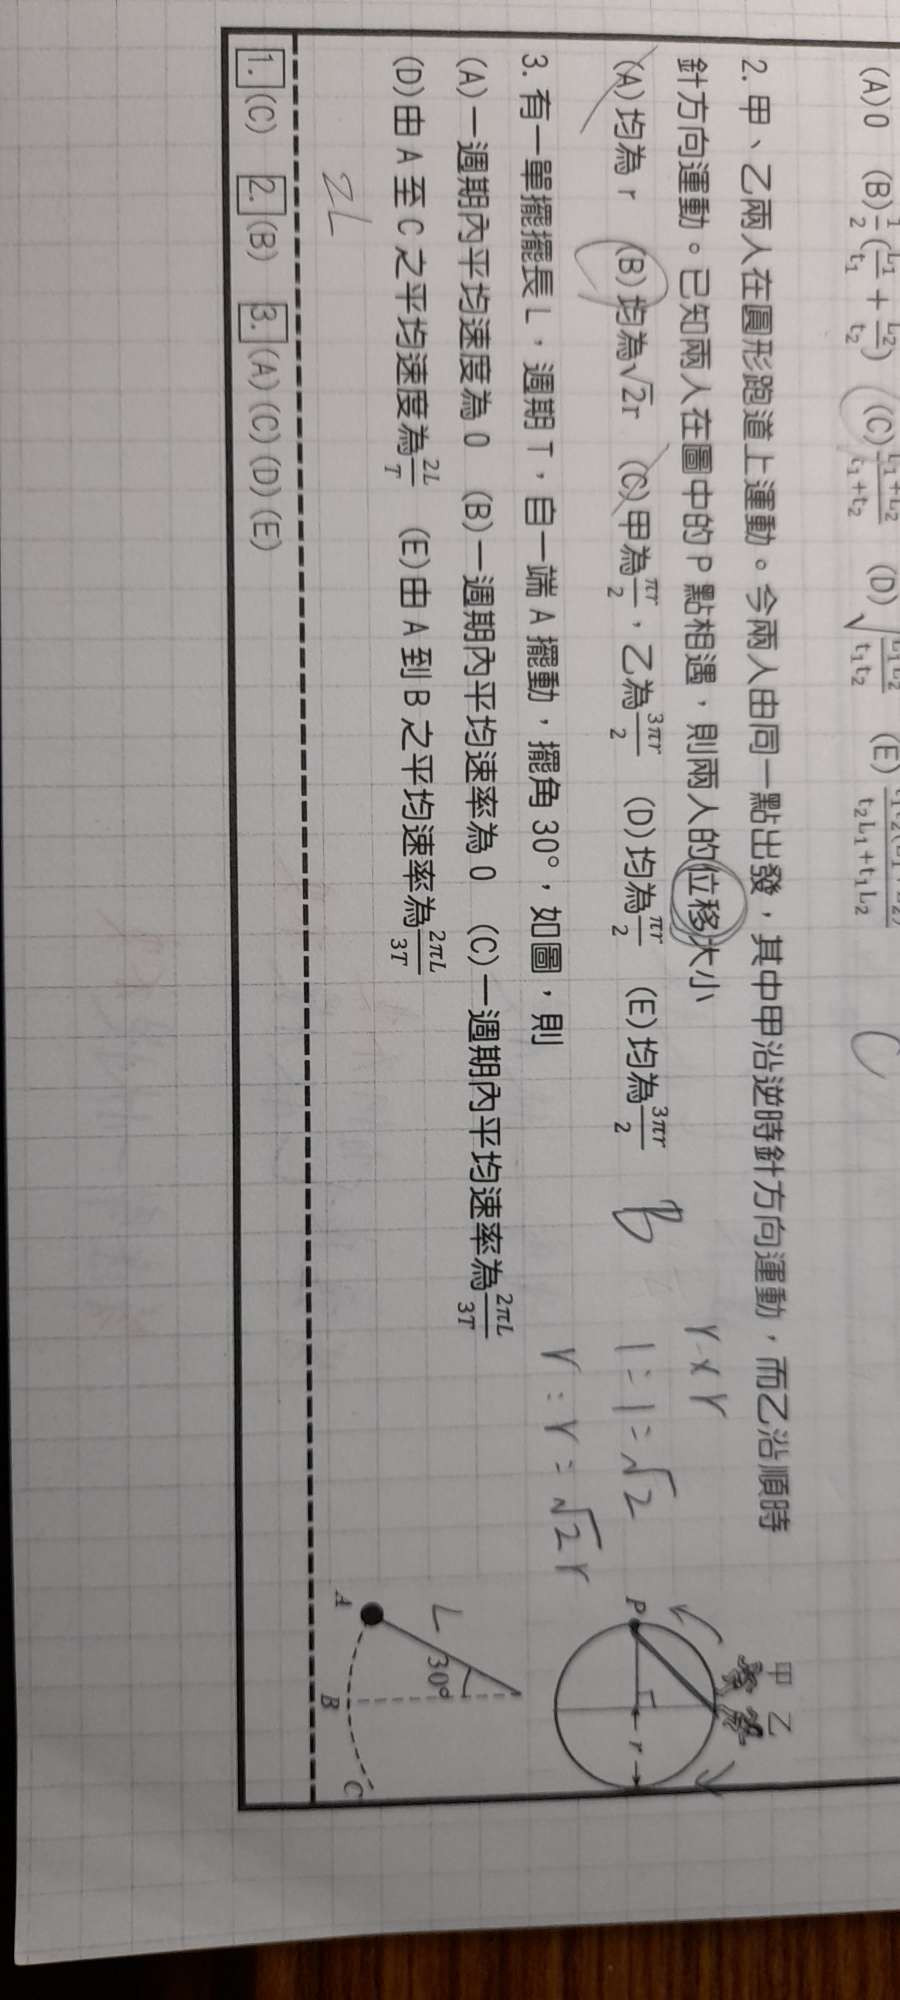 (A)0 (B)1/2(L1/t1 + L2/t2) (C)L1+L2/t1+t2 (D)√L1L2/t1t2 (E) t2L1+t1L2
C
2. 甲、乙兩人在圓形跑道上運動。今兩人由同一點出發，其中甲沿逆時針方向運動，而乙沿順時
針方向運動。已知兩人在圖中的 P 點相遇，則兩人的位移大小
(A)均為 r (B)均為√2r (C)甲為πr/2，乙為3πr/2 (D)均為πr/2 (E)均為3πr/2
B
r x r
1 = 1 = √2
r = r = √2 r
甲 乙
P
r
3. 有一單擺擺長 L，週期 T，自一端 A 擺動，擺角 30°，如圖，則
(A)一週期內平均速度為 0 (B)一週期內平均速率為 0 (C)一週期內平均速率為2πL/3T
(D)由 A 至 C 之平均速度為2L/T (E)由 A 到 B 之平均速率為2πL/3T
2L
L
30°
A
B
C
1.(C) 2.(B) 3.(A)(C)(D)(E)